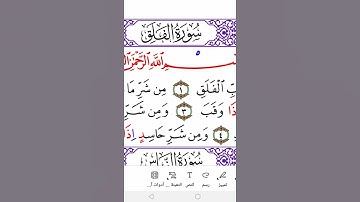 سُورَةُ الْفَلَقِ
ـمِ اللَّهِ الرَّحْمَٰنِ
ـبِّ الْفَلَقِ ١ مِن شَرِّ مَا
ـذَا وَقَبَ ٣ وَمِن شَـرِّ
٤ وَمِن شَرِّ حَاسِدٍ إِذَا
سُورَةُ النَّاسِ
تمييز رسم النص التعبئة ... أدوات أ...